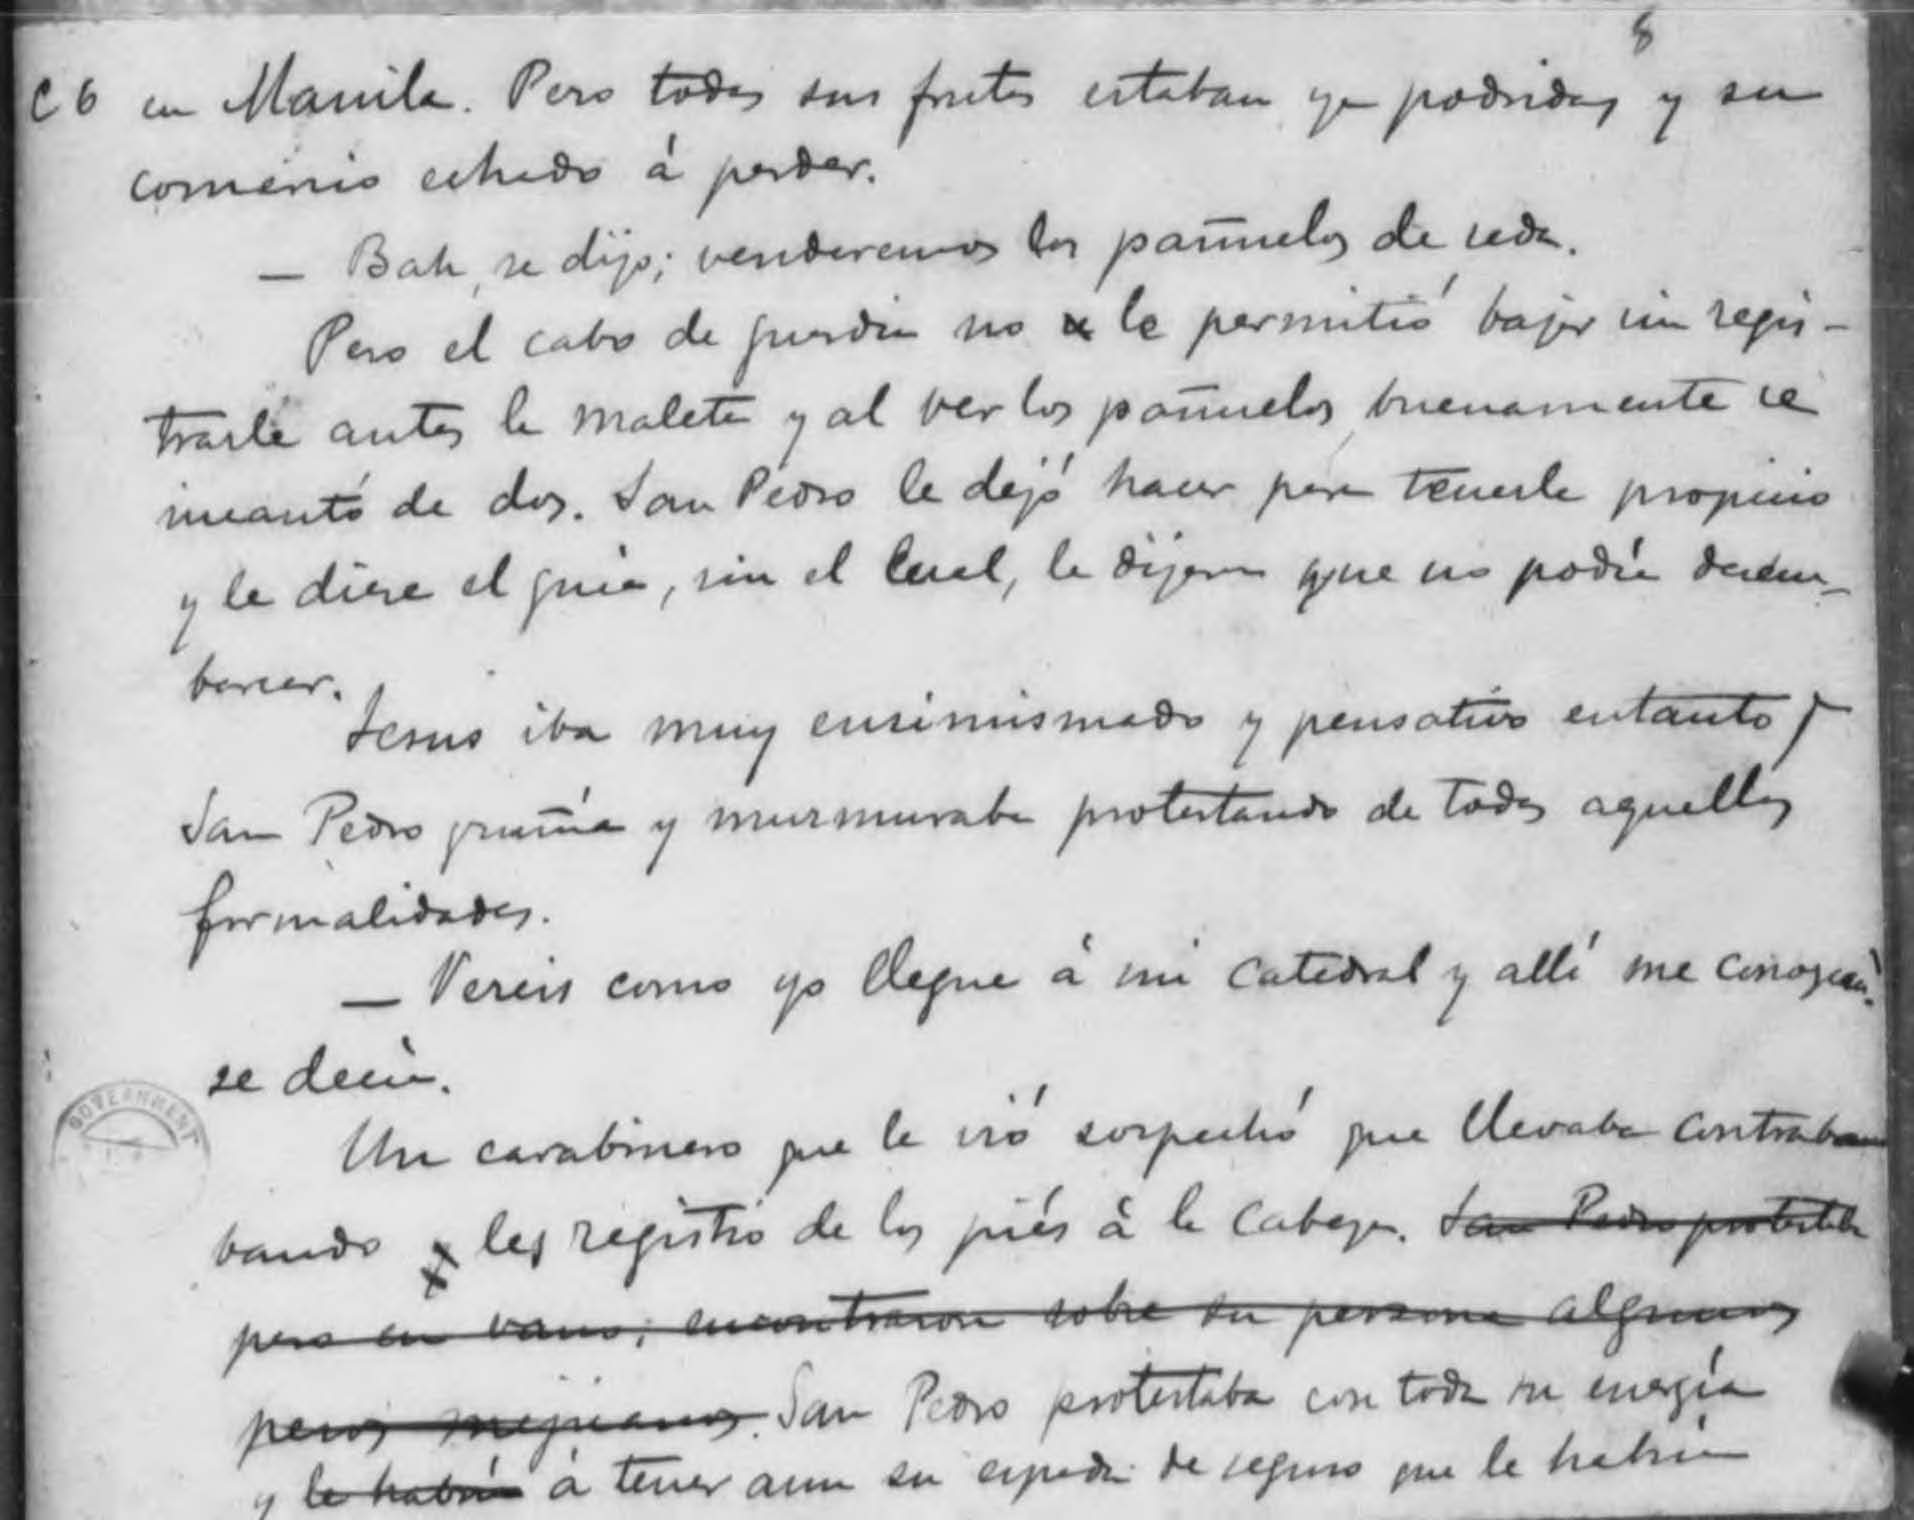 8
C 6 en Manila. Pero todas sus frutas estaban ya podridas y su
comercio echado á perder.
— Bah, se dijo; venderemos los pañuelos de seda.
Pero el cabo de guardia no le permitió bajar sin regis-
trarle antes la maleta y al ver los pañuelos buenamente se
incautó de dos. San Pedro le dejó hacer para tenerle propicio
y le diese el guia, sin el cual, le dijeron que no podía desem-
barcar.
Jesus iba muy ensimismado y pensativo entanto
San Pedro gruñía y murmuraba protestando de todas aquellas
formalidades.
— Vereis como yo llegue á mi catedral y allí me conozcan,
se decía.
Un carabinero que le vió sospechó que llevaba contraban
bando y les registró de los piés á la cabeza. San Pedro protestaba
pero en vano; encontraron sobre su persona algunos
pesos mejicanos. San Pedro protestaba con toda su energía
y le habría á tener aun su espada de seguro que le habría
GOVERNMENT